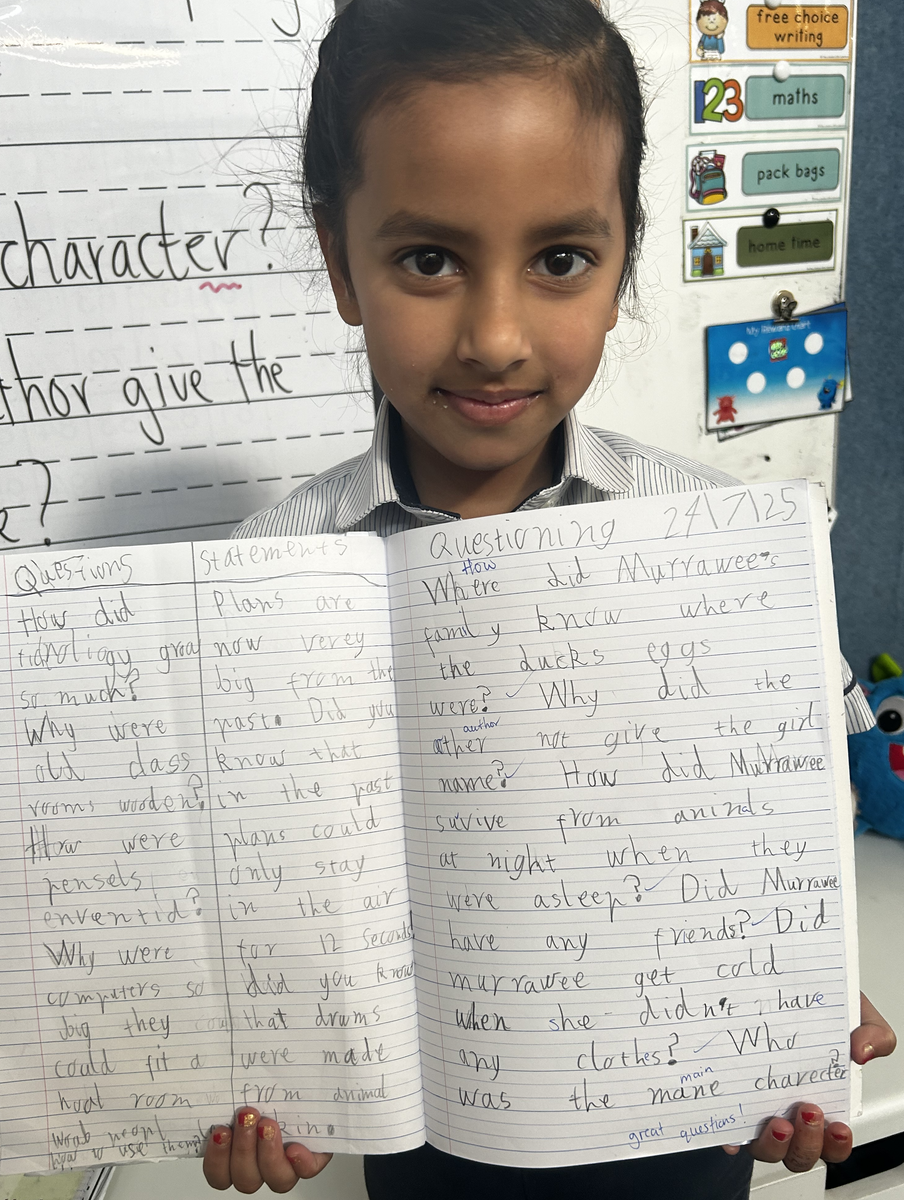 character?
thor give the
?
free choice
writing
123
maths
pack bags
home time
My Reward Chart
Questions
How did
so much?
Why were
old class
rooms wooden?
How were
pensels
enventid?
Why were
computers so
big they
could fit a
room
Statements
Plans are
now verey
big from the
past. Did you
know that
in the past
plans could
only stay
in the air
for 12 seconds
did you know
that drums
were made
from animal
skin.
Questioning 24/7/25
How
Where did Murrawee's
family know where
the ducks eggs
were? Why did the
author
not give the girl
name? How did Murrawee
suvive from
at night when they
were asleep? Did Murrawee
have any friends? Did
murrawee get cold
when she didn't have
any clothes? Who
main
was the mane charecter?
great questions!